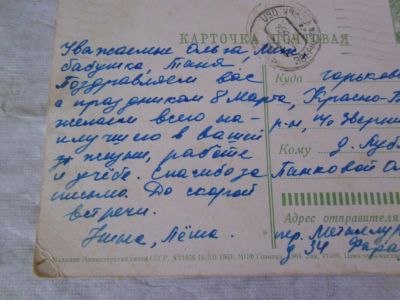 КАРТОЧКА ПОЧТОВАЯ
Уважаемые Ольга,
бабушка, Таня,
Поздравляем вас
с праздником 8 Марта,
желаем всего на-
илучшего в вашей
жизни, работе
и учёбе. Спасибо за
письмо. До скорой
встречи.
Лёша.
Куда горьков
Красно-
р-н,
Кому д.
Панковой Ол
Адрес отправителя
пр. Металлу
д 34
Издание Министерства связи СССР. 1963. МПФ Гознака. 1964.